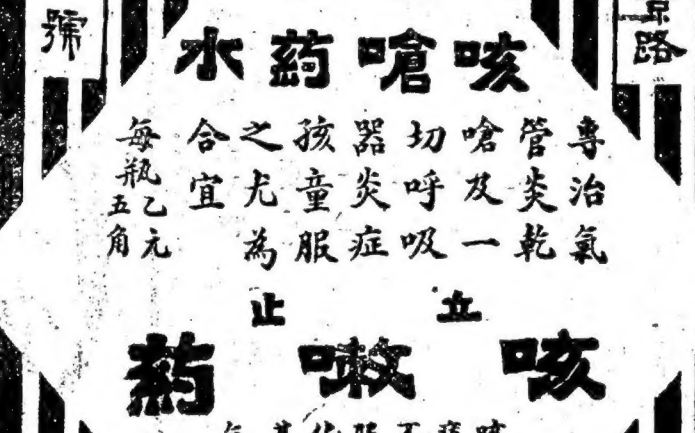 路
號
咳嗆葯水
專治氣
管炎乾
嗆及一
切呼吸
器炎症
孩童服
之尤為
合宜
每瓶乙元五角
立止
咳嗽葯